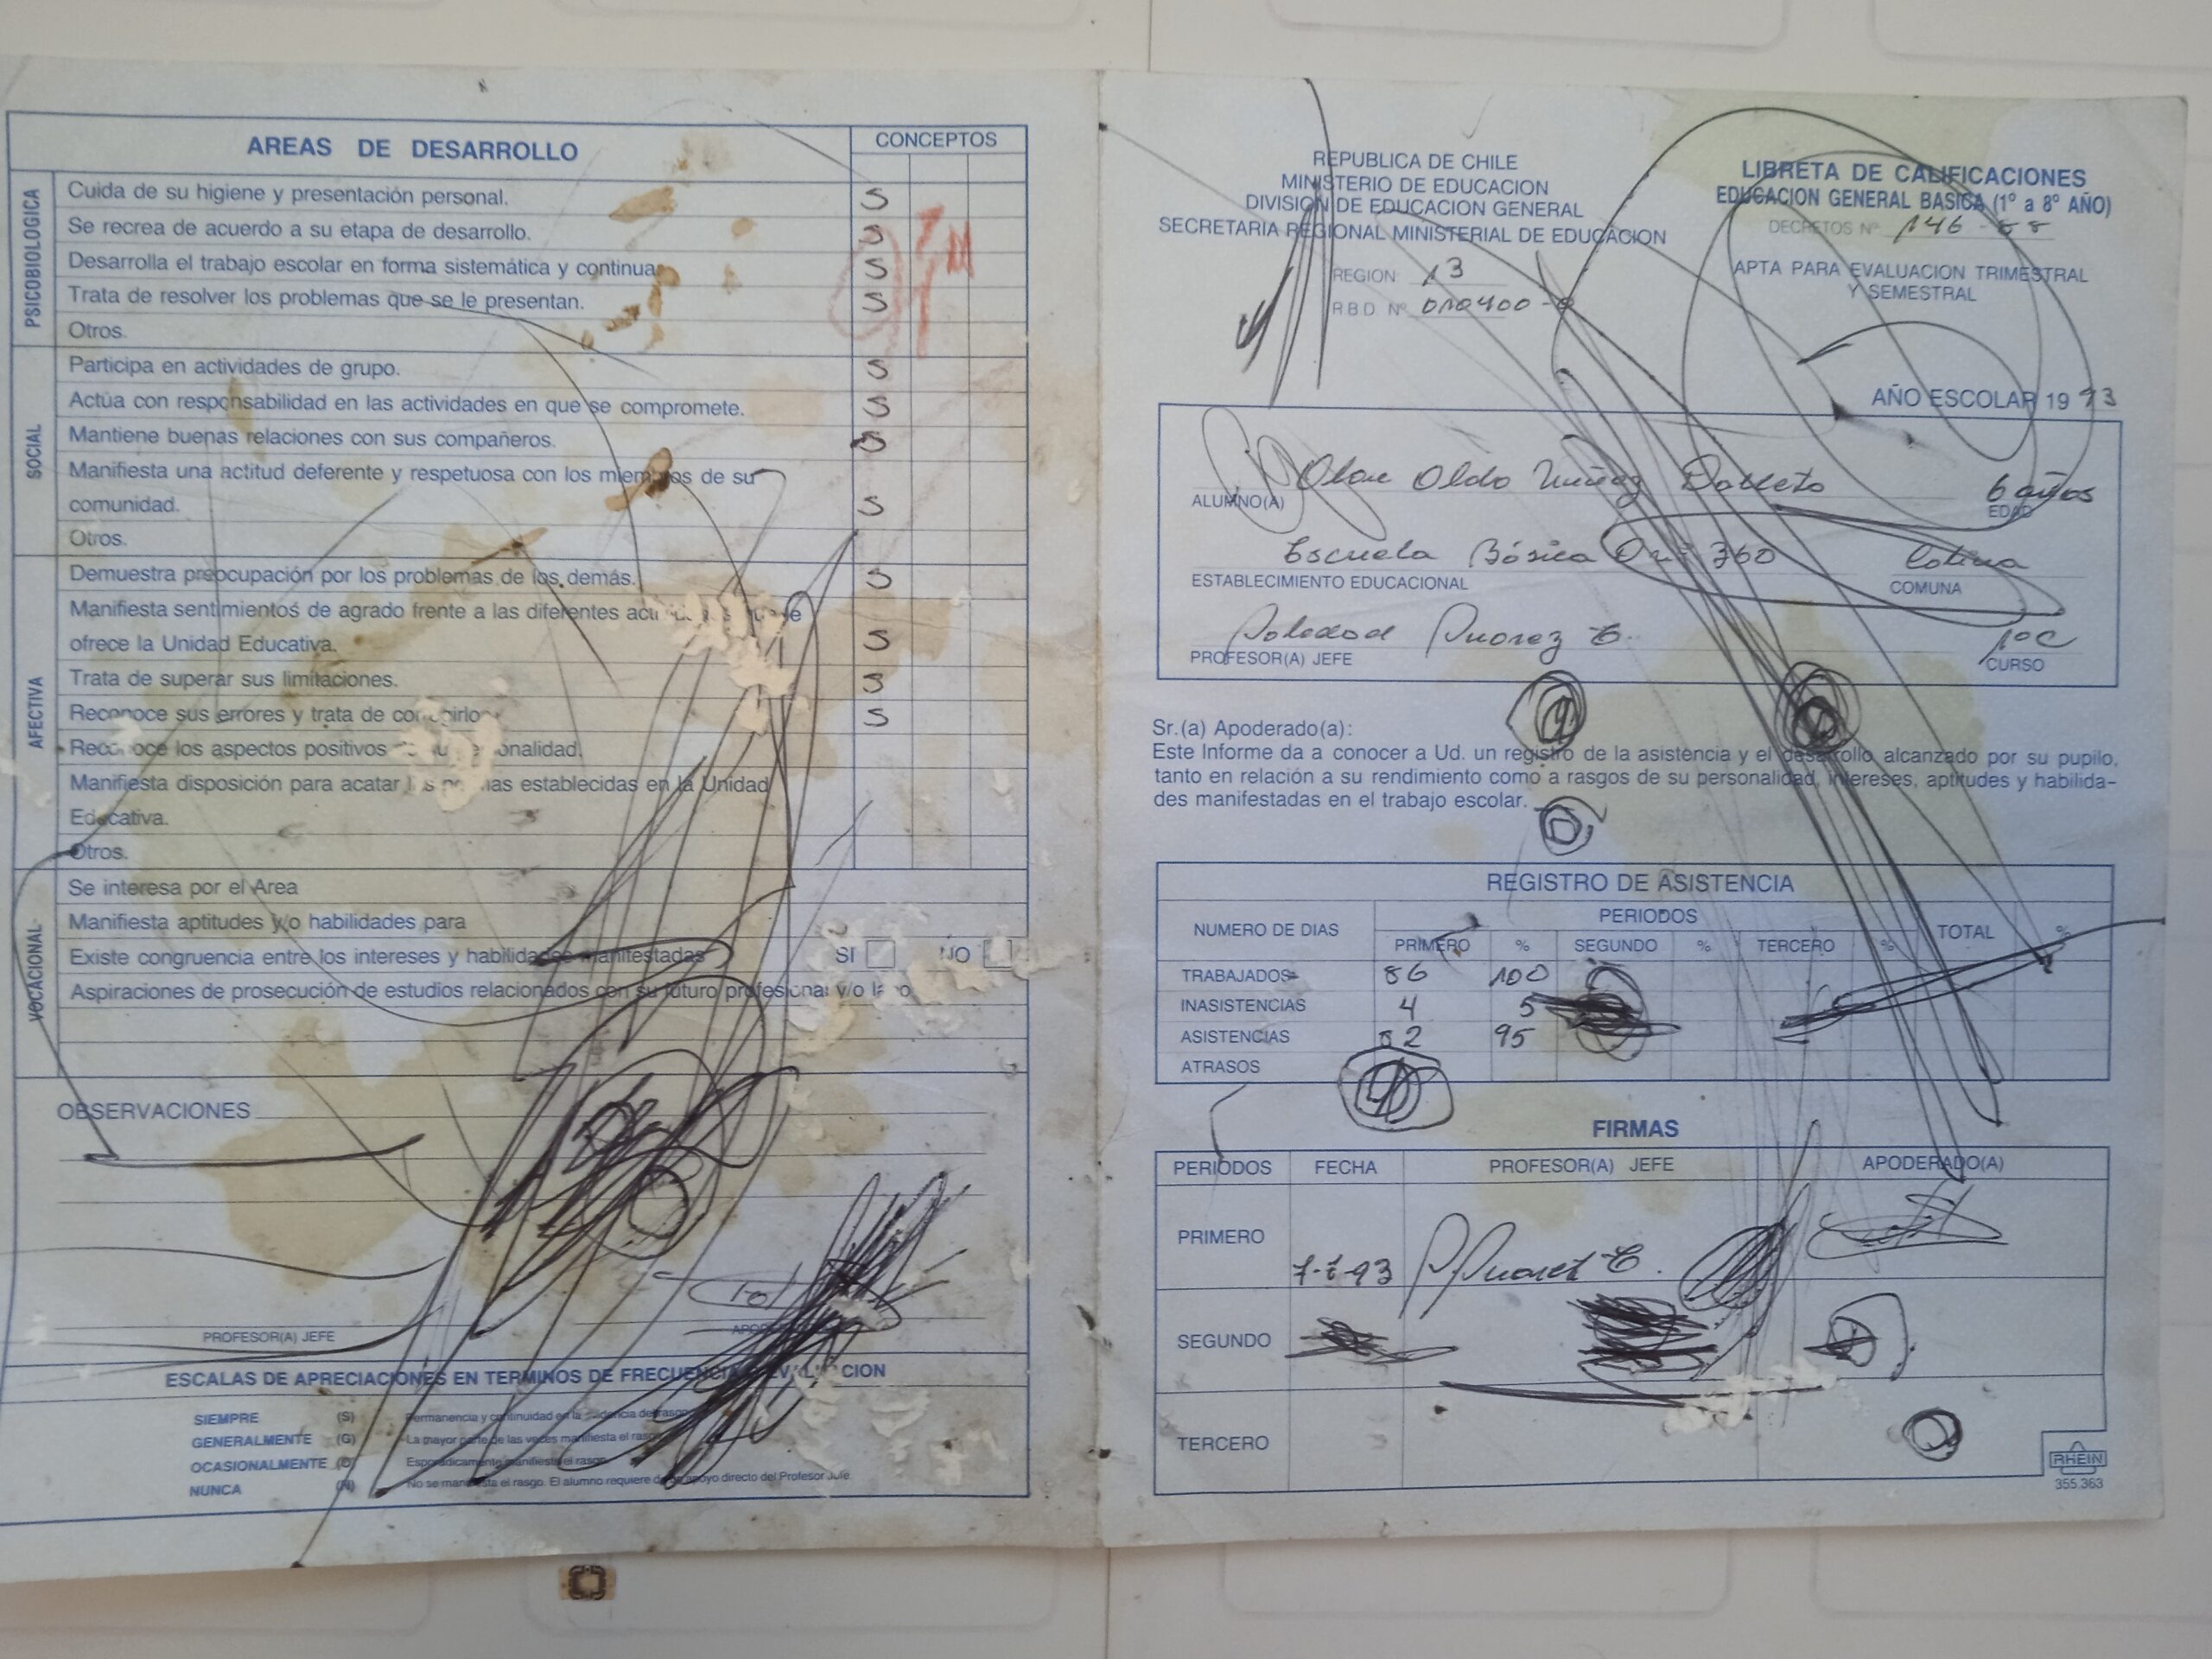 AREAS DE DESARROLLO
CONCEPTOS
PSICOBIOLOGICA
Cuida de su higiene y presentación personal. S
Se recrea de acuerdo a su etapa de desarrollo. S
Desarrolla el trabajo escolar en forma sistemática y continua. S
Trata de resolver los problemas que se le presentan. S
Otros.
SOCIAL
Participa en actividades de grupo. S
Actúa con responsabilidad en las actividades en que se compromete. S
Mantiene buenas relaciones con sus compañeros. S
Manifiesta una actitud deferente y respetuosa con los miembros de su
comunidad. S
Otros.
AFECTIVA
Demuestra preocupación por los problemas de los demás. S
Manifiesta sentimientos de agrado frente a las diferentes
ofrece la Unidad Educativa. S
Trata de superar sus limitaciones. S
Reconoce sus errores y trata de corregirlos S
Reconoce los aspectos positivos
Manifiesta disposición para acatar las normas establecidas en la Unidad
Educativa.
Otros.
VOCACIONAL
Se interesa por el Area
Manifiesta aptitudes y/o habilidades para
Existe congruencia entre los intereses y habilidades manifestadas SI NO
Aspiraciones de prosecución de estudios relacionados con su futuro profesional y/o
OBSERVACIONES
PROFESOR(A) JEFE
ESCALAS DE APRECIACIONES EN TERMINOS DE FRECUENCIA
SIEMPRE (S) Permanencia y continuidad en la del rasgo
GENERALMENTE (G) La mayor parte de las veces manifiesta el rasgo
OCASIONALMENTE (O) Esporádicamente manifiesta el rasgo
NUNCA (N) No se manifiesta el rasgo. El alumno requiere de apoyo directo del Profesor Jefe
REPUBLICA DE CHILE
MINISTERIO DE EDUCACION
DIVISION DE EDUCACION GENERAL
SECRETARIA REGIONAL MINISTERIAL DE EDUCACION
REGION 13
R B D Nº 010400-
LIBRETA DE CALIFICACIONES
EDUCACION GENERAL BASICA (1º a 8º AÑO)
DECRETOS Nº 146 - 88
APTA PARA EVALUACION TRIMESTRAL
Y SEMESTRAL
AÑO ESCOLAR 1993
Núñez 6 años
ALUMNO(A) EDAD
Escuela Básica 360 Colina
ESTABLECIMIENTO EDUCACIONAL COMUNA
Soledad Suarez C. 1º C
PROFESOR(A) JEFE CURSO
Sr.(a) Apoderado(a):
Este Informe da a conocer a Ud. un registro de la asistencia y el desarrollo alcanzado por su pupilo,
tanto en relación a su rendimiento como a rasgos de su personalidad, intereses, aptitudes y habilida-
des manifestadas en el trabajo escolar.
REGISTRO DE ASISTENCIA
NUMERO DE DIAS PERIODOS TOTAL %
PRIMERO % SEGUNDO % TERCERO %
TRABAJADOS 86 100
INASISTENCIAS 4 5
ASISTENCIAS 82 95
ATRASOS
FIRMAS
PERIODOS FECHA PROFESOR(A) JEFE APODERADO(A)
PRIMERO 7-7-93
SEGUNDO
TERCERO
RHEIN
355.363